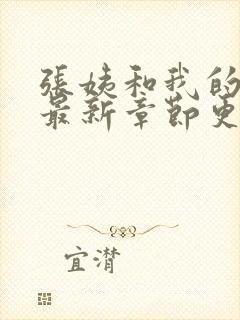 張姨和我的
最新章節更
宜潸